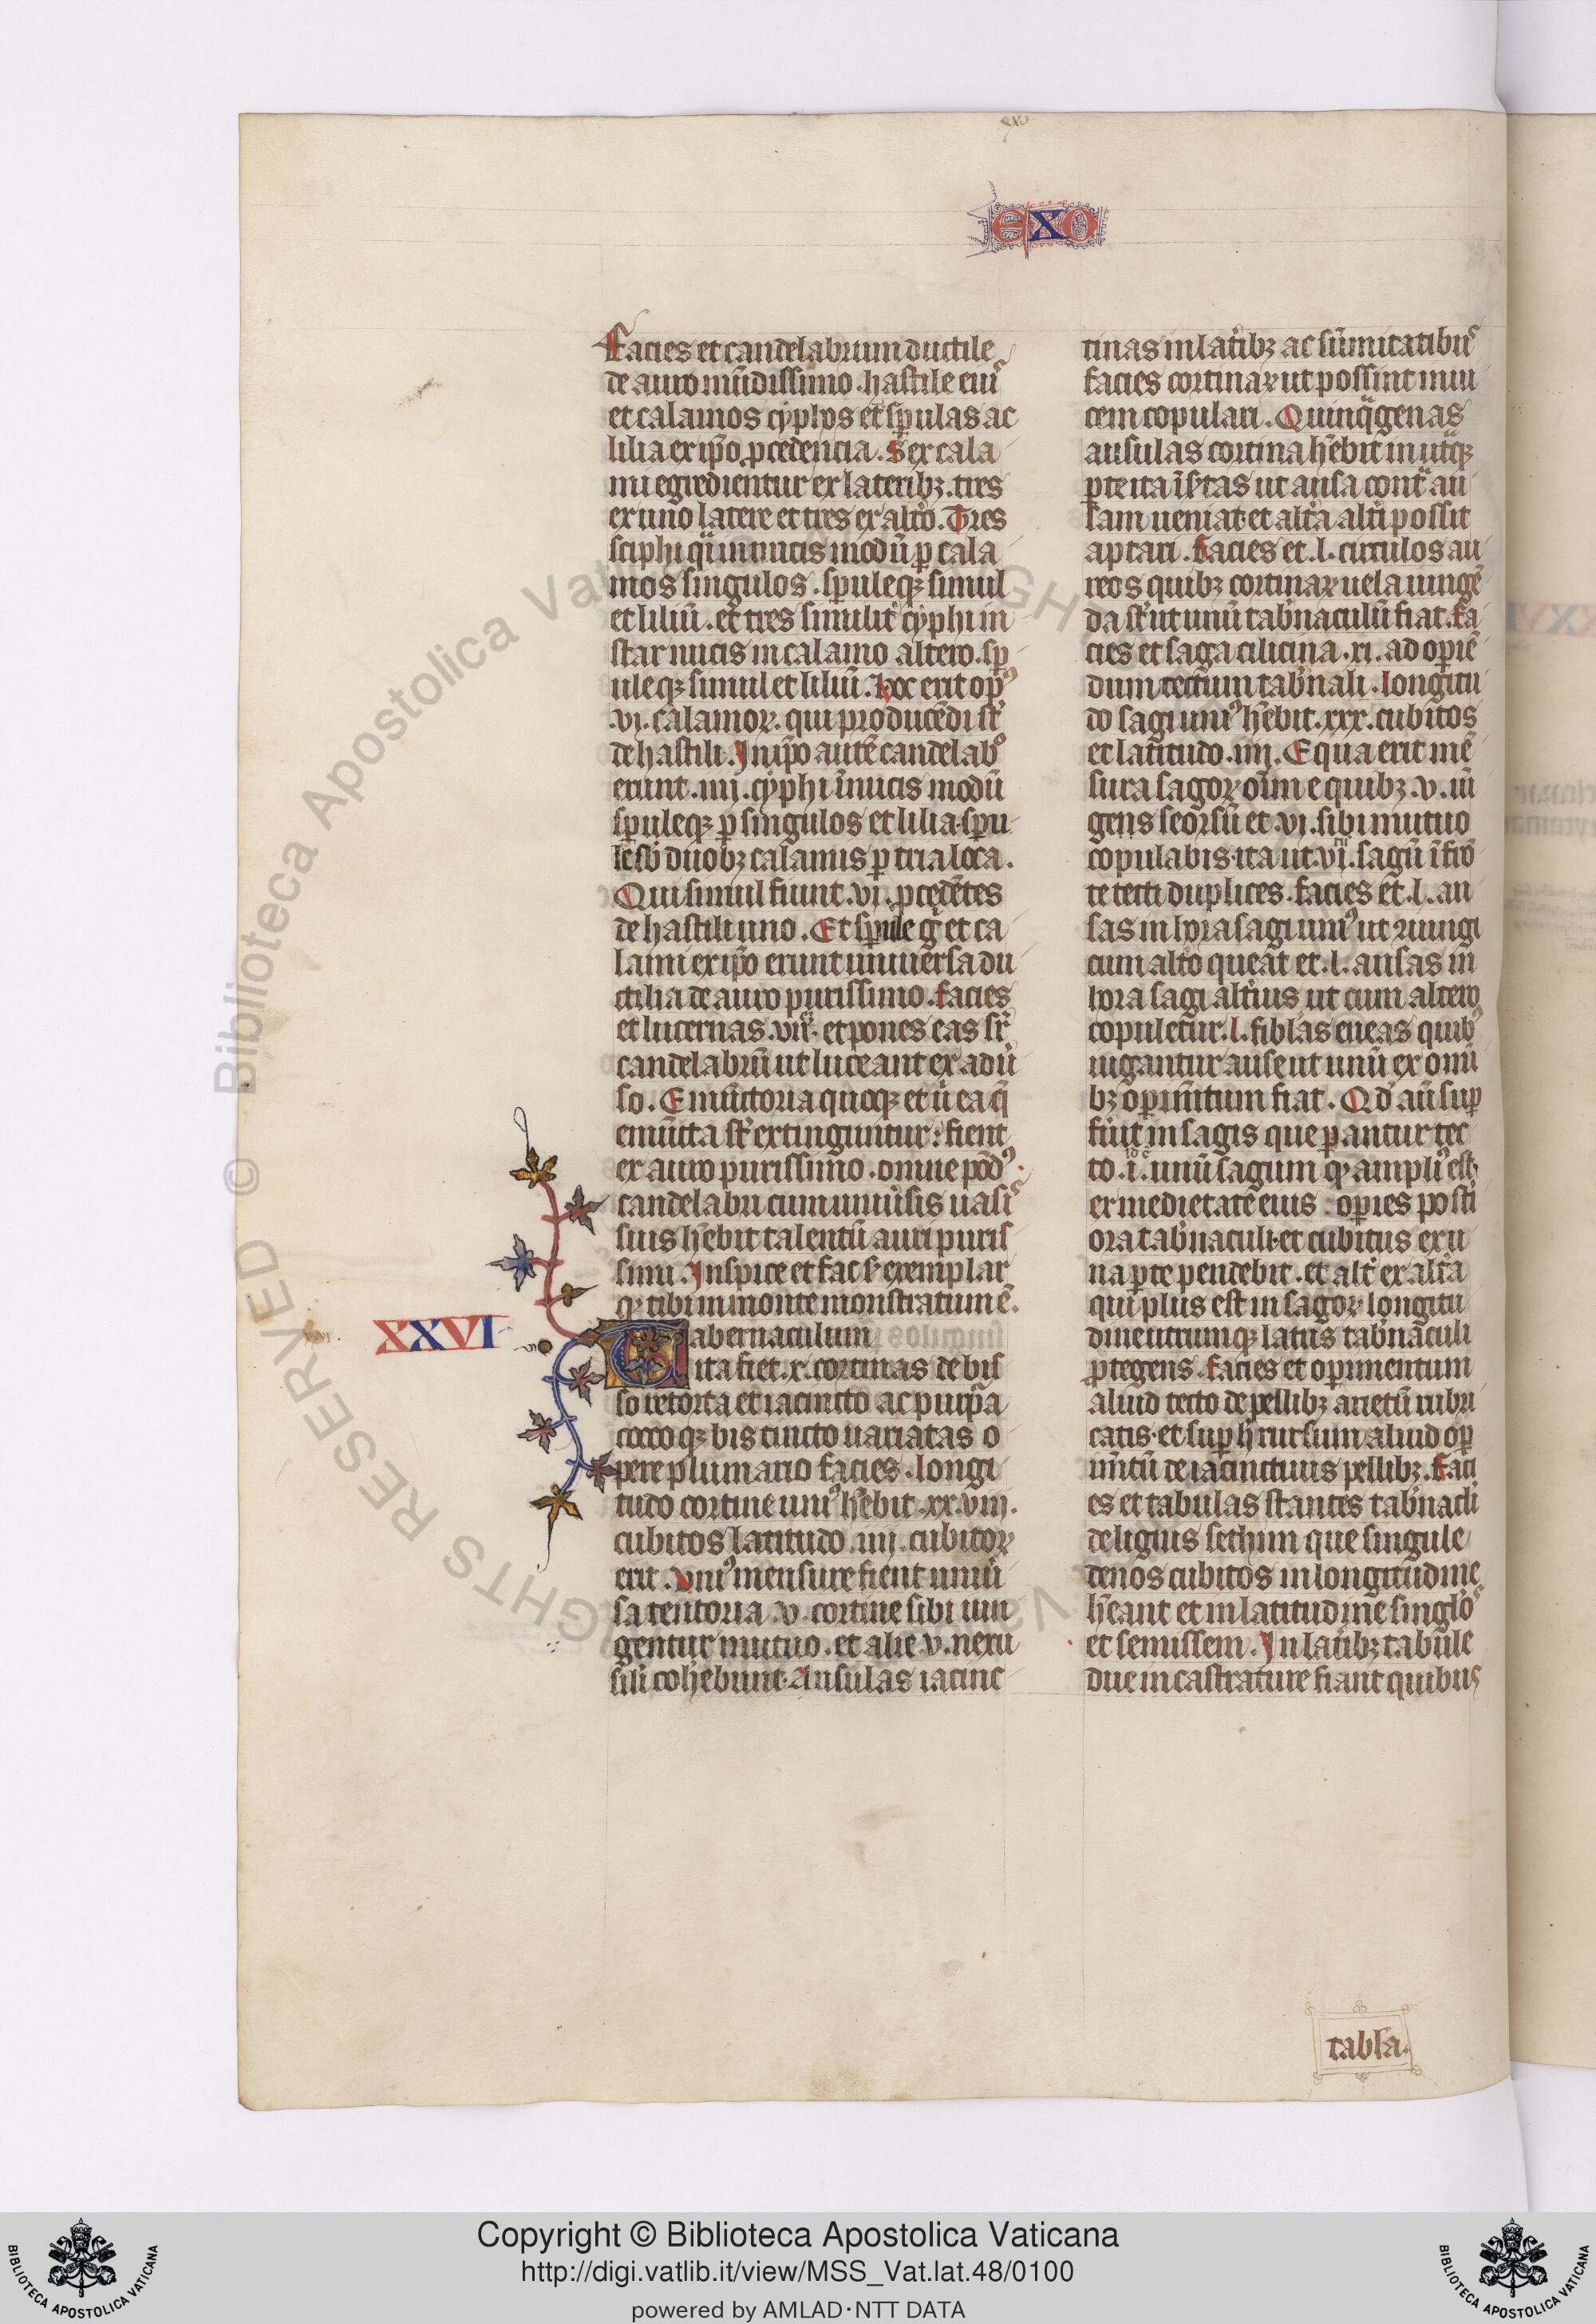 exo
Facies et candelabrum ductile
de auro mu̅dissimo. hastile eiꝰ
et calamos cyphos et sperulas ac
lilia ex ip̅o ꝓcedencia. Sex cala
mi egredientur ex laterib; .tres
ex uno latere et tres ex alto̅. Tres
sciphi qͣi in nucis modu̅ ꝑ cala
mos singulos. sꝑuleq; simul
et liliu̅. et tres similit̾ cyphi in
star nucis in calamo altero. sꝑ
uleq; simul et liliu̅. hoc erit opꝰ
.vi. calamoꝝ. qui produce̅di st̅
de hastili. In ip̅o aute̅ candelabͦ
erunt .iiij. cyphi i̅ nucis modu̅
sꝑuleq; ꝑ singulos et lilia. sꝑu
le sb̅ duob; calamis ꝑ tria loca.
Qui simul fiunt .vi. ꝓcede̅tes
de hastili uno. Et sꝑule gͦ et ca
lami ex ip̅o erunt uniuersa du
ctilia de auro purissimo. facies
et lucernas .vii. et pones eas sr̅
candelabru̅ ut luceant ex adu̾
so. Emu̅ctoria quoq; et u̾ ea q̅
emu̅cta st̅ extinguntur: fient
ex auro purissimo. omne po̅dꝰ
candelabri cum uniu̾sis uasiꝰ
suis he̅bit talentu̅ auri puris
simi. Inspice et fac s̾ exemplar
q; tibi in monte monstratum e̅.
XXVI
Tabernaculum
ita fiet .x. cortinas de bis
so retorta et iacincto ac purpͣa
coccoq; bis tincto uariatas o
pere plumario facies. longi
tudo cortine uniꝰ he̅bit .xx.viij.
cubitos latitudo .iiij. cubitoꝝ
erit. Uniꝰ mensure fient uniu̾
sa tentoria .v. cortine sibi iun
gentur mutuo. et alie .v. nexu
sili̅ cohe̅bunt. Ansulas iacinc
tinas in lat̾ib; ac su̅mitatibuꝰ
facies cortinaꝝ ut possint inui
cem copulari. Quinqͣgenas
ansulas cortina he̅bit in utͣq;
ꝑte ita i̅s̾tas ut ansa contͣ an
sam ueniat. et alt̾a alt̾i possit
aptari. Facies et .l. circulos au
reos quib; cortinaꝝ uela iunge̅
da st̅ ut unu̅ tab̾naculu̅ fiat. Fa
cies et saga cilicina .xi. ad oꝑie̅
dum tectum tab̾nali. longitu
do sagi uniꝰ he̅bit .xxx. cubitos
et latitudo .iiij. Equa erit me̅
sura sagoꝝ oi̅m e quib; .v. iu̅
gens seorsu̅ et .vi. sibi mutuo
copulabis. ita ut .vi. sagu̅ i̅ fro̅
te tecti duplices. facies et .l. an
sas in hora sagi uniꝰ ut ↄiungi
cum alto̅ quea̅t et .l. ansas in
hora sagi alt̾ius ut cum altero
copuletur .l. fiblas eneas quibꝰ
iu̅gantur anse ut unu̅ ex omni
b; oꝑim̅tum fiat. Qd̾ au̅ suꝑ
fu̾it in sagis que ꝑantur tec
to .i. unu̅ sagum q; ampliꝰ est.
ex medietate eius oꝑies post̾i
ora tab̾naculi. et cubitus ex u
na ꝑte pendebit. et alt̾ ex alt̾a
qui plus est in sagoꝝ longitu
dine utrumq; latus tab̾naculi
ꝓtegens. Facies et oꝑimentum
aliud tecto de pellib; arietu̅ rubri
catis. et suꝑ h̾ rursum aliud oꝑ
im̅tu̅ de iacinctinis pellib;. Faci
es et tabulas stantes tab̾nacli
de lignis sethim que singule
denos cubitos in longitudine
he̅ant et in latitudine singloꝰ
et semissem. In lat̾ib; tabule
due incastrature fiant quibus
tabla.
Copyright © Biblioteca Apostolica Vaticana
http://digi.vatlib.it/view/MSS_Vat.lat.48/0100
powered by AMLAD·NTT DATA
BIBLIOTECA APOSTOLICA VATICANA
BIBLIOTECA APOSTOLICA VATICANA